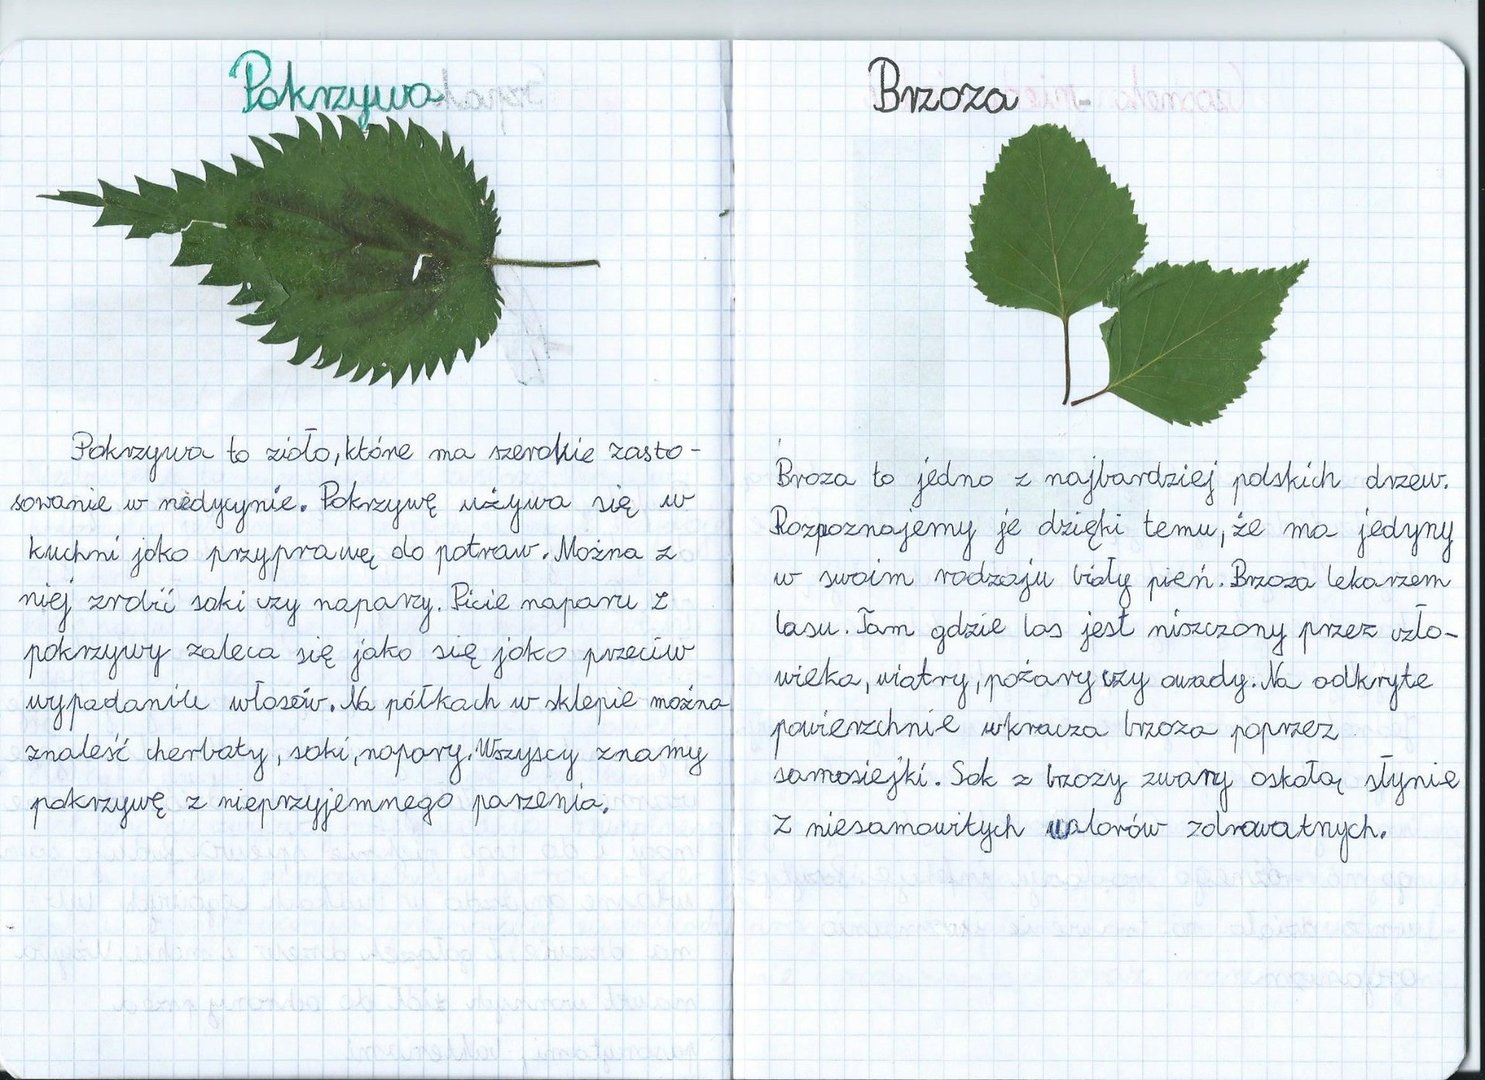 Pokrzywa
Pokrzywa to zioło, które ma szerokie zasto-
sowanie w medycynie. Pokrzywę używa się w
kuchni jako przyprawę do potraw. Można z
niej zrobić soki czy napary. Picie naparu z
pokrzywy zaleca się jako się jako przeciw
wypadaniu włosów. Na półkach w sklepie można
znaleść herbaty, soki, napary. Wszyscy znamy
pokrzywę z nieprzyjemnego parzenia.
Brzoza
Broza to jedno z najbardziej polskich drzew.
Rozpoznajemy je dzięki temu, że ma jedyny
w swoim rodzaju biały pień. Brzoza lekarzem
lasu. Tam gdzie las jest niszczony przez czło-
wieka, wiatry, pożary czy owady. Na odkryte
powierzchnie wkracza brzoza poprzez
samosiejki. Sok z brzozy zwany oskołą słynie
z niesamowitych walorów zdrowatnych.